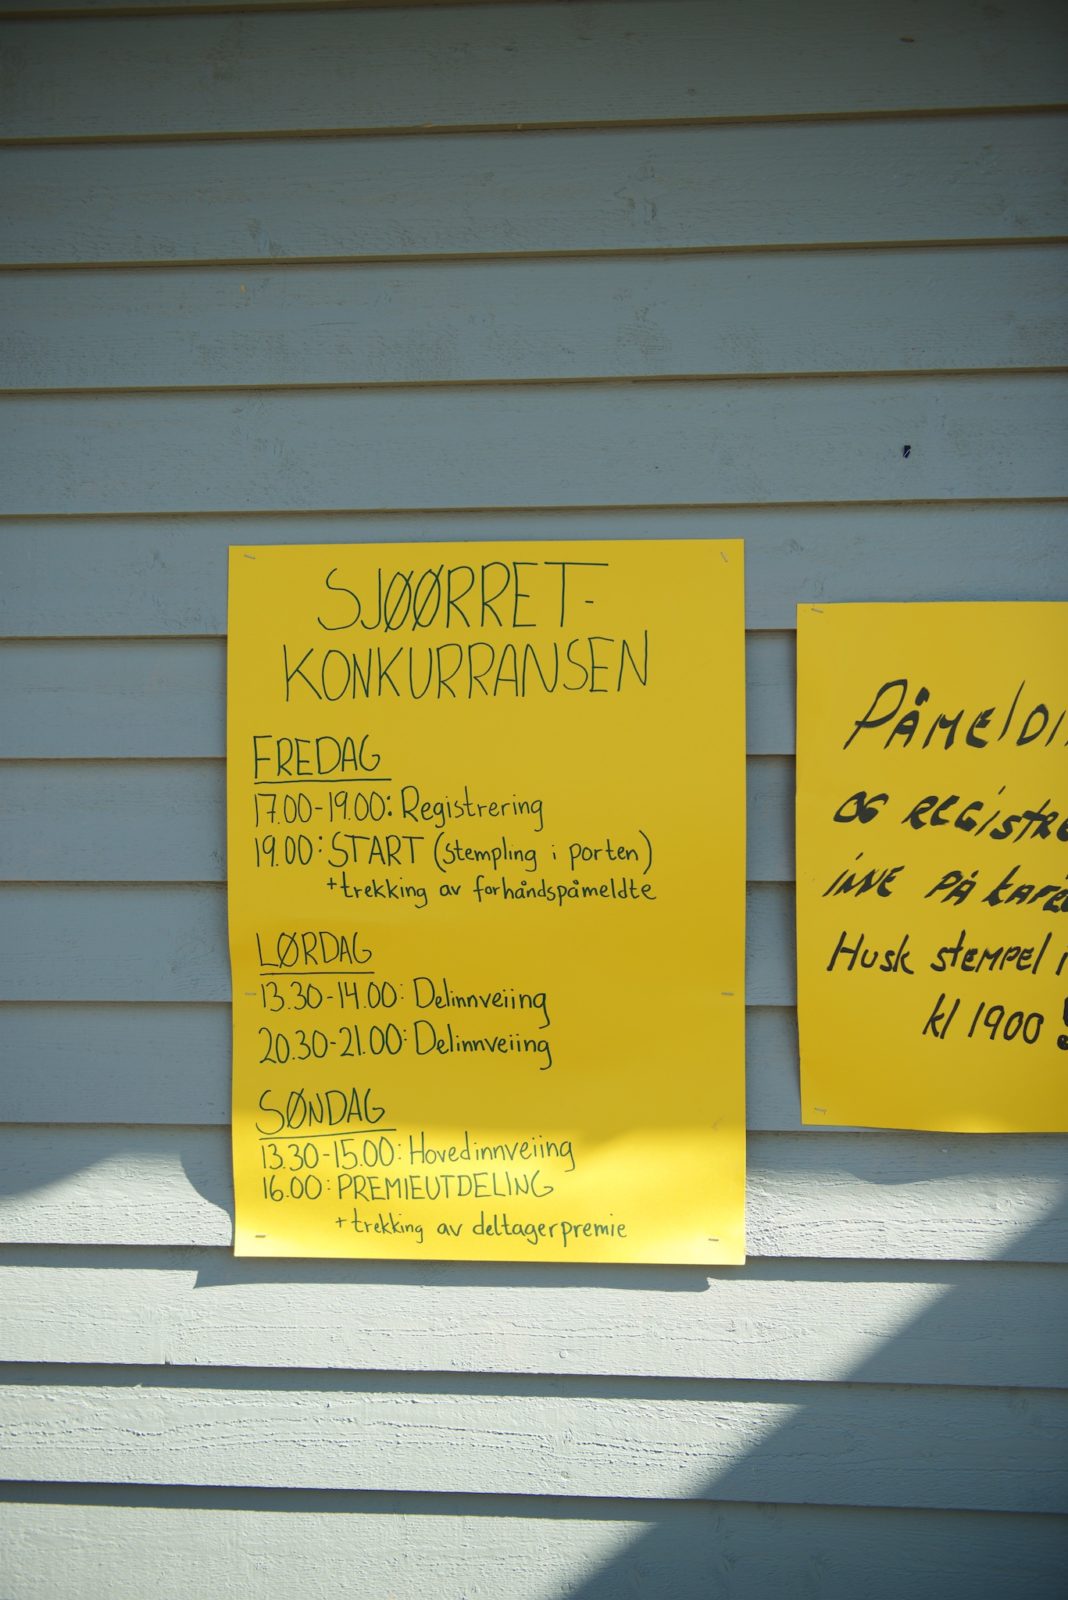 SJØØRRET-
KONKURRANSEN
FREDAG
17.00-19.00: Registrering
19.00: START (stempling i porten)
+trekking av forhåndspåmeldte
LØRDAG
13.30-14.00: Delinnveiing
20.30-21.00: Delinnveiing
SØNDAG
13.30-15.00: Hovedinnveiing
16.00: PREMIEUTDELING
+trekking av deltagerpremie
PÅMELDI
OG REGISTRE
INNE PÅ
Husk stempel
kl 1900